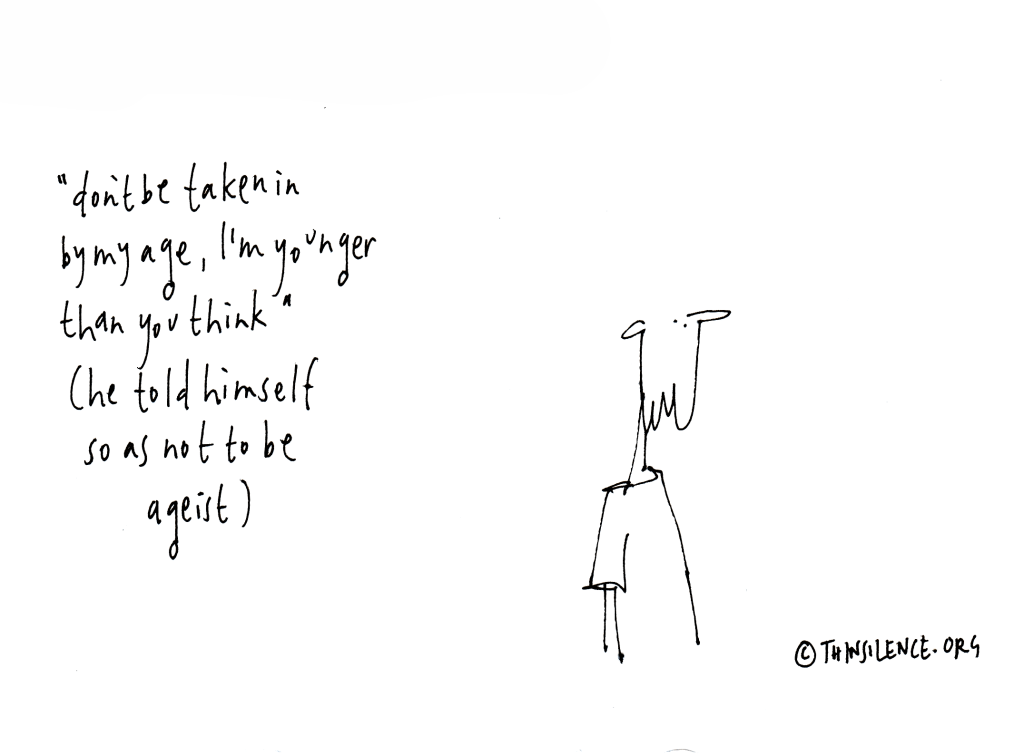 "don't be taken in
by my age, I'm younger
than you think"
(he told himself
so as not to be
ageist)
© THINSILENCE.ORG